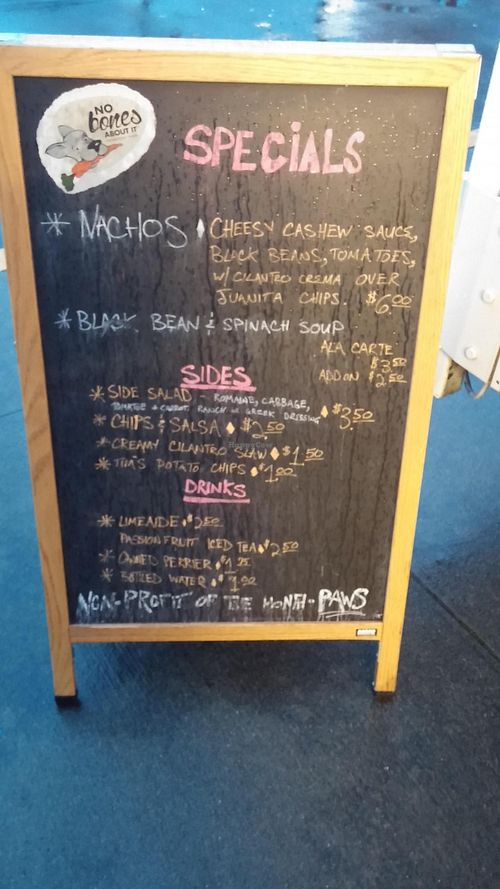 NO
bones
ABOUT IT
SPECIALS
* NACHOS CHEESY CASHEW SAUCE,
BLACK BEANS, TOMATOES,
W/ CILANTRO CREMA OVER
JUANITA CHIPS. $6.00
* BLACK BEAN & SPINACH SOUP
ALA CARTE
$3.50
ADD ON $2.50
SIDES
* SIDE SALAD - ROMAINE, CABBAGE,
TOMATOE & CARROT, RANCH OR GREEK DRESSING $3.50
* CHIPS & SALSA $2.50
* CREAMY CILANTRO SLAW $1.50
* TIM'S POTATO CHIPS $1.00
DRINKS
* LIMEAIDE $2.50
PASSIONFRUIT ICED TEA $2.50
* PERRIER $1.75
* BOTTLED WATER $1.00
NON-PROFIT OF THE MONTH - PAWS